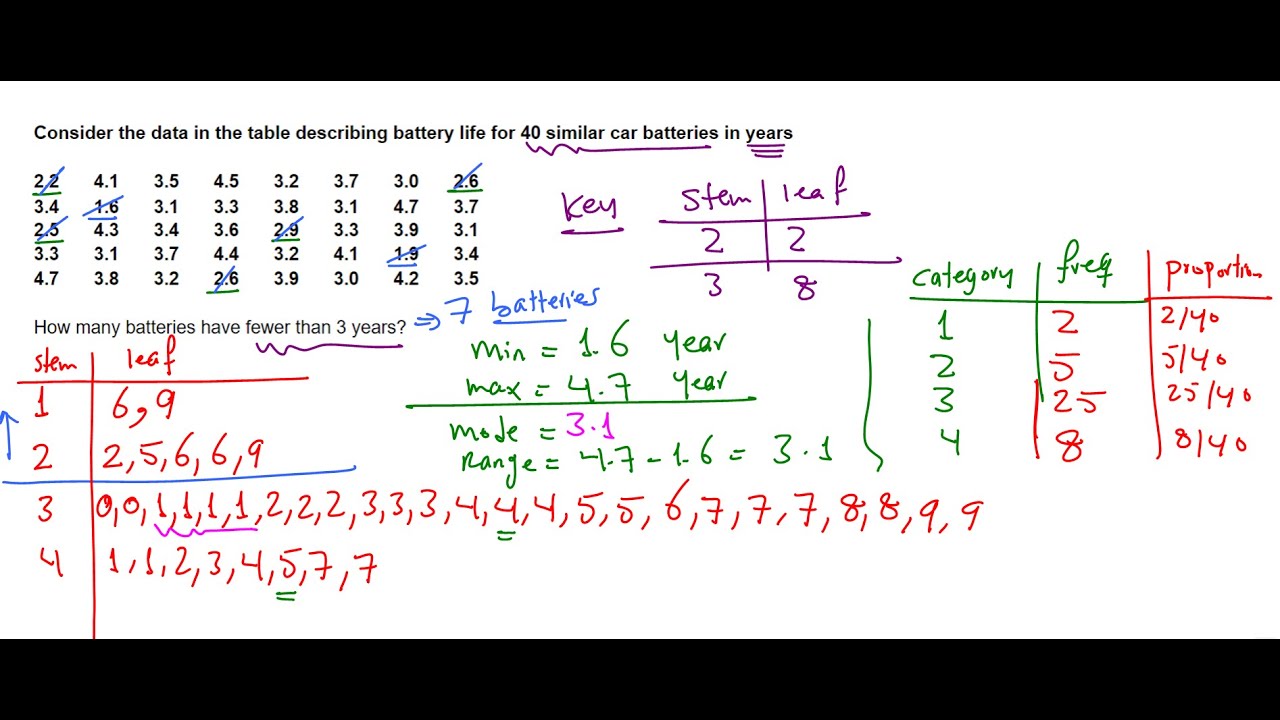 Consider the data in the table describing battery life for 40 similar car batteries in years
2.2 4.1 3.5 4.5 3.2 3.7 3.0 2.6
3.4 1.6 3.1 3.3 3.8 3.1 4.7 3.7
2.5 4.3 3.4 3.6 2.9 3.3 3.9 3.1
3.3 3.1 3.7 4.4 3.2 4.1 1.9 3.4
4.7 3.8 3.2 2.6 3.9 3.0 4.2 3.5
Key
stem leaf
2 2
3 8
How many batteries have fewer than 3 years? ⇒ 7 batteries
stem leaf
1 6,9
2 2,5,6,6,9
3 0,0,1,1,1,1,2,2,2,3,3,3,4,4,4,5,5,6,7,7,7,8,8,9,9
4 1,1,2,3,4,5,7,7
min = 1.6 year
max = 4.7 year
mode = 3.1
Range = 4.7-1.6 = 3.1
category freq proportion
1 2 2/40
2 5 5/40
3 25 25/40
4 8 8/40